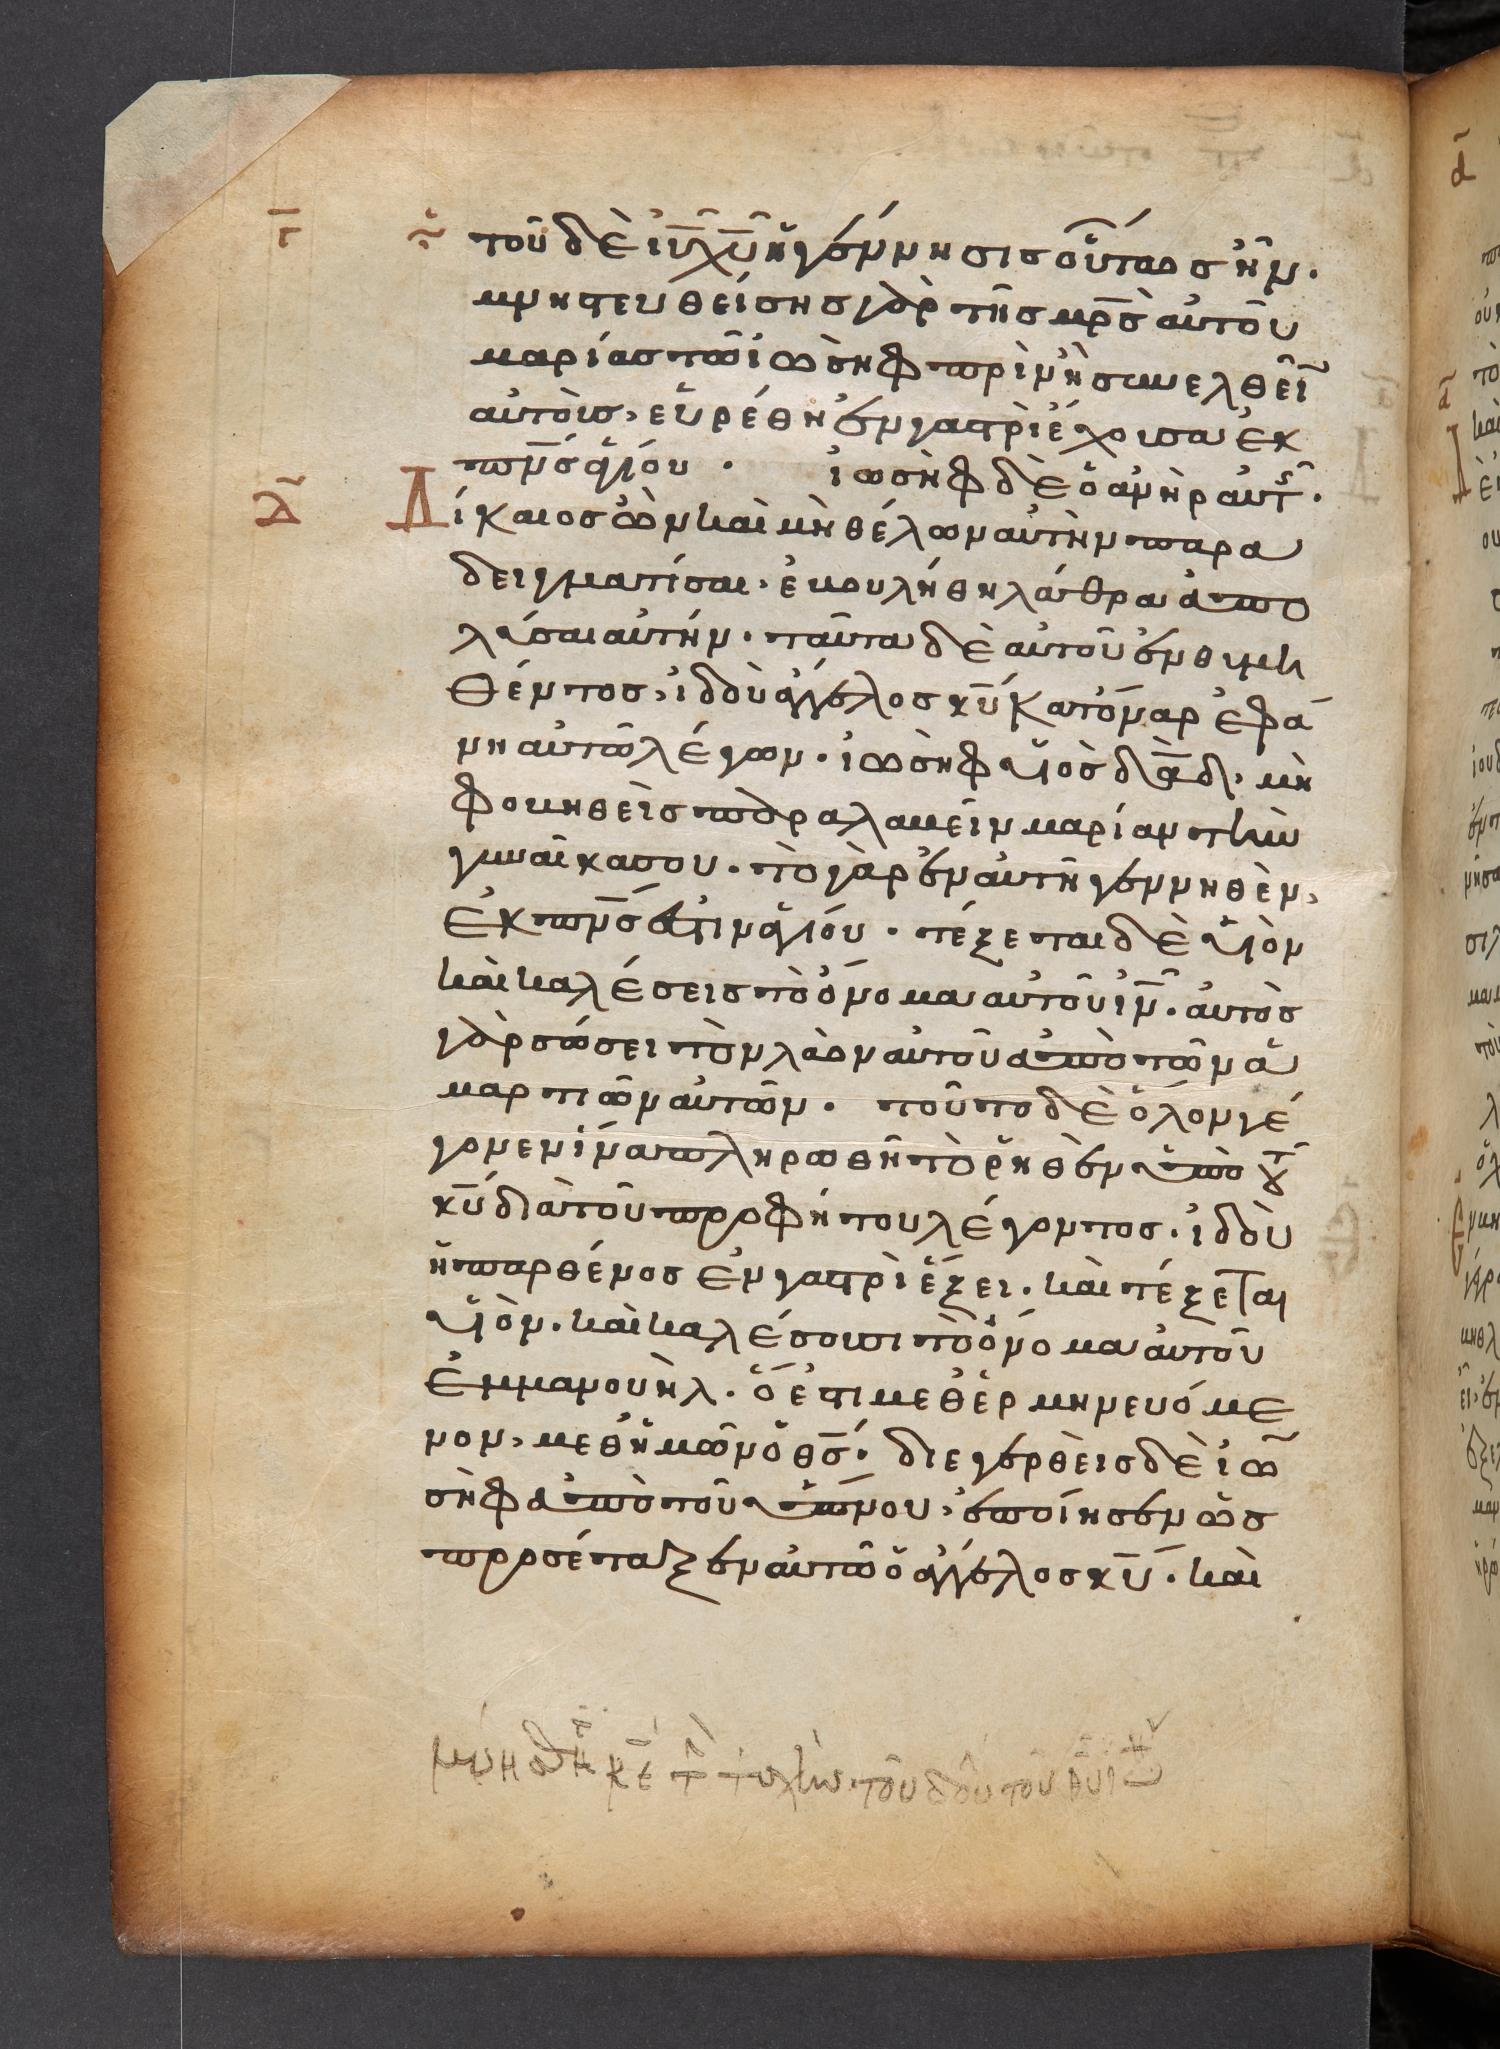 τοῦ δὲ ἰ̅υ̅ χ̅υ̅ ἡ γέννησις οὕτως ἦν.
μνηστευθείσης γὰρ τῆς μ̅ρ̅ς̅ αὐτοῦ
μαρίας τῶ ἰωσὴφ πρὶν ἢ συνελθεῖν
αὐτοὺς, εὑρέθη ἐν γαστρὶ ἔχουσα ἐκ
π̅ν̅ς̅ ἁγίου. ἰωσὴφ δὲ ὁ ἀνὴρ αὐτῆς.
Δίκαιος ὢν καὶ μὴ θέλων αὐτὴν παρα
δειγματίσαι, ἐβουλήθη λάθρα ἀπο
λύσαι αὐτήν. ταῦτα δὲ αὐτοῦ ἐνθυμη
θέντος, ἰδοὺ ἄγγελος κ̅υ̅ κατόναρ ἐφά
νη αὐτῶ λέγων. ἰωσὴφ υἱὸς δ̅α̅δ̅. μὴ
φοβηθεὶς παραλαβεῖν μαρίαμ τὴν
γυναῖκα σου. τὸ γὰρ ἐν αὐτῆ γεννηθὲν,
ἐκ π̅ν̅ς̅ ἐστιν ἁγίου. τέξεται δὲ υἱὸν
καὶ καλέσεις τὸ ὄνομα αὐτοῦ ἰ̅ν̅. αὐτὸς
γὰρ σώσει τὸν λαὸν αὐτοῦ ἀπὸ τῶν ἁ
μαρτιῶν αὐτῶν. τοῦτο δὲ ὅλον γέ
γονεν ἵνα πληρωθῆ τὸ ῥηθὲν ὑπὸ τοῦ
κ̅υ̅ διὰ τοῦ προφήτου λέγοντος. ἰδοὺ
ἡ παρθένος ἐν γαστρὶ ἕξει. καὶ τέξεται
υἱὸν. καὶ καλέσουσι τὸ ὄνομα αὐτοῦ
ἐμμανουὴλ. ὅ ἐστι μεθερμηνευόμε
νον, μεθ ἡμῶν ὁ θ̅ς̅. διεγερθεὶς δὲ ἰω
σὴφ ἀπὸ τοῦ ὕπνου, ἐποίησεν ὡς
προσέταξεν αὐτῶ ὁ ἄγγελος κ̅υ̅. καὶ